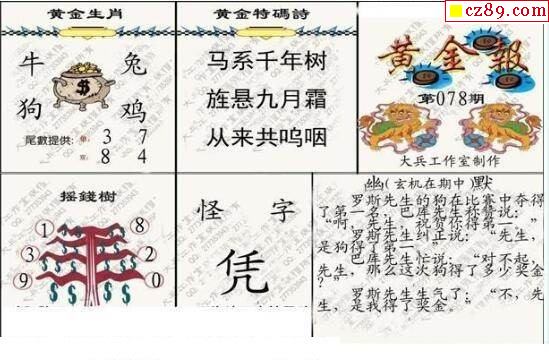 cz89.com
黄金生肖
牛 兔
狗 鸡
尾數提供: 单: 3 7
双: 8 4
黄金特碼詩
马系千年树
旌悬九月霜
从来共呜咽
黄金報
第078期
大兵工作室制作
摇錢樹
1 8
3 2
9 0
怪 字
凭
幽(玄机在期中)默
罗斯先生的狗在比赛中夺得
了第一名，巴库先生称赞说：
“啊，先生，祝贺你得第一。”
罗斯先生纠正说：“先生，
是狗得了第一。”
巴库先生忙说：“对不起，
先生，那么这次狗得了多少奖金
？”
罗斯先生生气了：“不，先
生，是我得了奖金。”